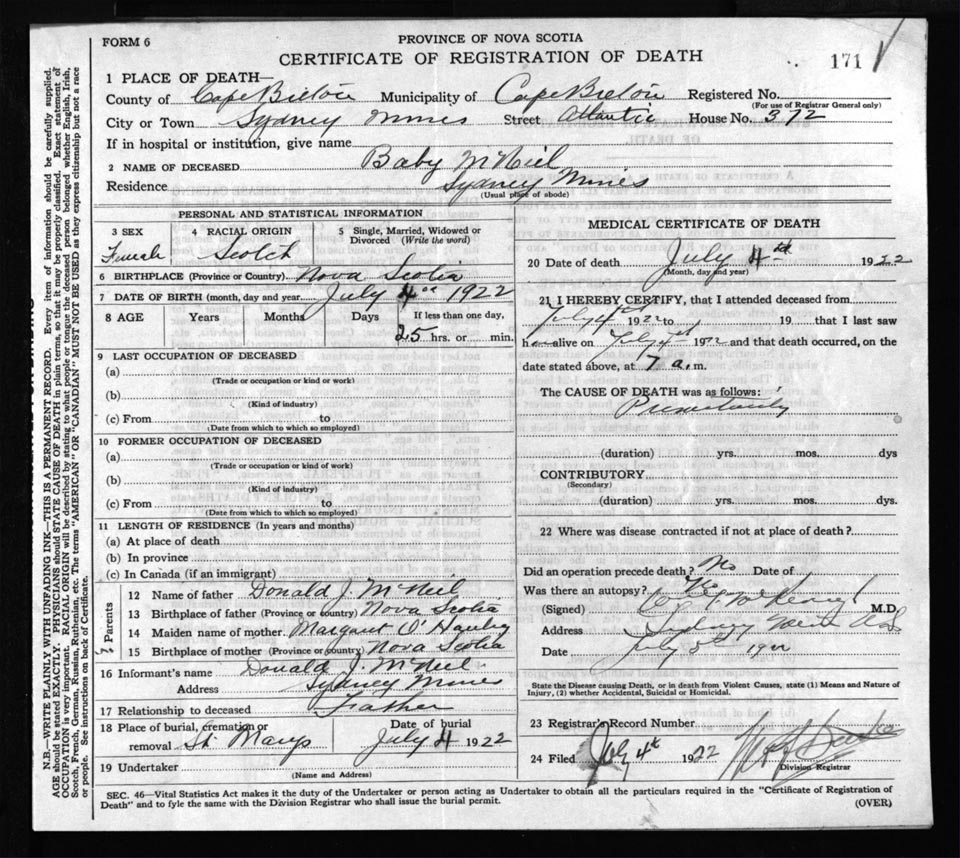 FORM 6
PROVINCE OF NOVA SCOTIA
CERTIFICATE OF REGISTRATION OF DEATH
171
1 PLACE OF DEATH—
County of Cape Breton Municipality of Cape Breton Registered No.
(For use of Registrar General only)
City or Town Sydney Mines Street Atlantic House No. 372
If in hospital or institution, give name
2 NAME OF DECEASED Baby McNeil
Residence Sydney Mines
(Usual place of abode)
PERSONAL AND STATISTICAL INFORMATION
3 SEX 4 RACIAL ORIGIN 5 Single, Married, Widowed or Divorced (Write the word)
Female Scotch
6 BIRTHPLACE (Province or Country) Nova Scotia
7 DATE OF BIRTH (month, day and year July 4 1922
8 AGE Years Months Days If less than one day,
25 hrs. or min.
9 LAST OCCUPATION OF DECEASED
(a)
(Trade or occupation or kind or work)
(b)
(Kind of industry)
(c) From to
(Date from which to which so employed)
10 FORMER OCCUPATION OF DECEASED
(a)
(Trade or occupation or kind of work)
(b)
(Kind of industry)
(c) From to
(Date from which to which so employed)
11 LENGTH OF RESIDENCE (In years and months)
(a) At place of death
(b) In province
(c) In Canada (if an immigrant)
Parents
12 Name of father Donald J. McNeil
13 Birthplace of father (Province or country) Nova Scotia
14 Maiden name of mother Margaret O'Hanley
15 Birthplace of mother (Province or country) Nova Scotia
16 Informant's name Donald J. McNeil
Address Sydney Mines
17 Relationship to deceased Father
18 Place of burial, cremation or Date of burial
removal St. Marys July 4 1922
19 Undertaker
(Name and Address)
MEDICAL CERTIFICATE OF DEATH
20 Date of death July 4th 1922
(Month, day and year)
21 I HEREBY CERTIFY, that I attended deceased from
July 4th 1922 to 19 that I last saw
h alive on July 4th 1922 and that death occurred, on the
date stated above, at 7 a.m.
The CAUSE OF DEATH was as follows:
Prematurity
(duration) yrs. mos. dys
CONTRIBUTORY
(Secondary)
(duration) yrs. mos. dys.
22 Where was disease contracted if not at place of death?
Did an operation precede death? No Date of
Was there an autopsy? No
(Signed) M.D.
Address Sydney Mines
Date July 5th 1922
State the Disease causing Death, or in death from Violent Causes, state (1) Means and Nature of
Injury, (2) whether Accidental, Suicidal or Homicidal.
23 Registrar's Record Number
24 Filed July 4th 1922
Division Registrar
SEC. 46—Vital Statistics Act makes it the duty of the Undertaker or person acting as Undertaker to obtain all the particulars required in the "Certificate of Registration of
Death" and to fyle the same with the Division Registrar who shall issue the burial permit.
(OVER)
N.B.—WRITE PLAINLY WITH UNFADING INK—THIS IS A PERMANENT RECORD. Every item of information should be carefully supplied.
AGE should be stated EXACTLY. PHYSICIANS should STATE CAUSE OF DEATH in plain terms, so that it may be properly classified. Exact statement of
OCCUPATION is very important. RACIAL ORIGIN will be described by stating to what people or tongue the deceased person belonged whether English, Irish,
Scotch, French, German, Russian, Ruthenian, etc. The terms "AMERICAN" OR "CANADIAN" MUST NOT BE USED as they express citizenship but not a race
or people. See instructions on back of Certificate.